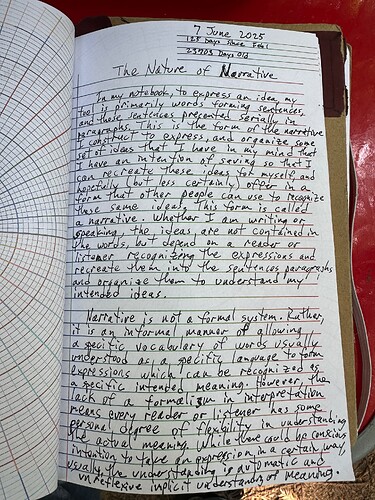 7 June 2025
128 Days Since Feb 1
23903 Days Old
The Nature of Narrative
In my notebook, to express an idea, my
tool is primarily words forming sentences,
and those sentences presented serially in
paragraphs. This is the form of the narrative
I construct to express and organize some
set of ideas that I have in my mind that
I have an intention of saving so that I
can recreate these ideas for myself, and
hopefully (but less certainly) offer in a
form that other people can use to recognize
those same ideas. This form is called
a narrative. Whether I am writing or
speaking, the ideas are not contained in
the words, but depend on a reader or
listener recognizing the expressions and
recreate them into the sentences paragraphs
and organize them to understand my
intended ideas.
Narrative is not a formal system. Rather,
it is an informal manner of allowing
a specific vocabulary of words usually
understood as a specific language to form
expressions which can be recognized as
a specific intended meaning. However, the
lack of a formalism in interpretation
means every reader or listener has some
personal degree of flexibility in understanding
the actual meaning. While there could be conscious
intention to take an expression in a certain way,
usually the understanding is automatic and
unreflexive implicit understanding of meaning.